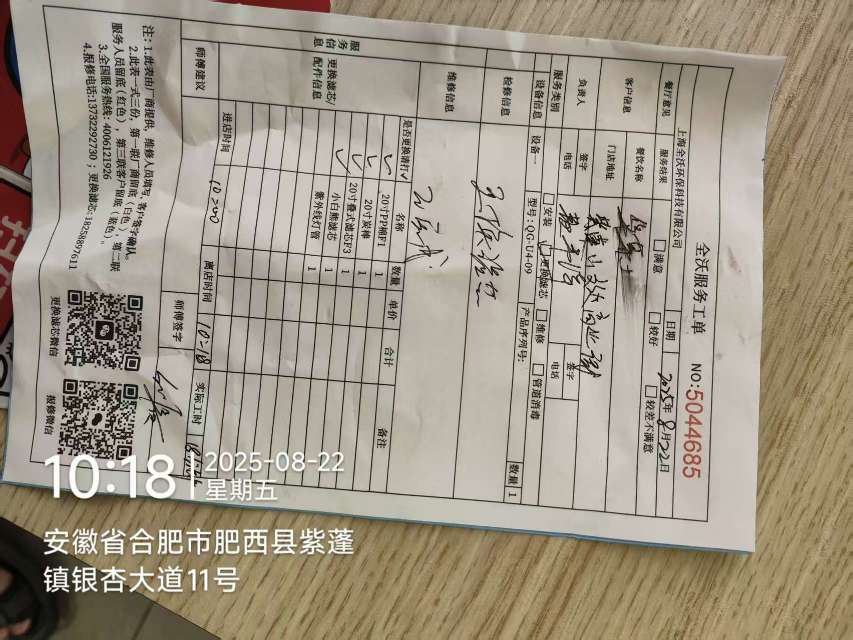 全沃服务工单
NO:5044685
上海全沃环保科技有限公司
日期 2025年8月22日
餐厅意见 服务结果 满意 较好 较差不满意
客户信息 餐饮名称
门店地址
负责人 签字 签字
电话 电话
服务类别 安装 更换滤芯 维修 管道消毒
设备信息 设备一 型号:QG-U4-09 产品序列号: 数量 1
检修信息
维修信息
服务信息
更换滤芯/配件信息
是否更换请打✓ 名称 数量 单价 合计 备注
✓ 20寸PP棉F1 1
✓ 20寸炭棒 1
✓ 20寸叠式滤芯F3 1
✓ 小白熊滤芯 1
紫外线灯管 1
师傅建议
进店时间 10:00 离店时间 10:18 实际工时
师傅签字
注:1.此表由厂商提供,维修人员填写,客户签字确认。
2.此表一式三份,第一联厂商留底(白色),第二联
服务人员留底(红色),第三联客户留底(蓝色)。
3.全国服务热线:4006121926
4.报修电话:13732292730;更换滤芯:18268897611
更换滤芯微信
报修微信
10:18
2025-08-22
星期五
安徽省合肥市肥西县紫蓬
镇银杏大道11号